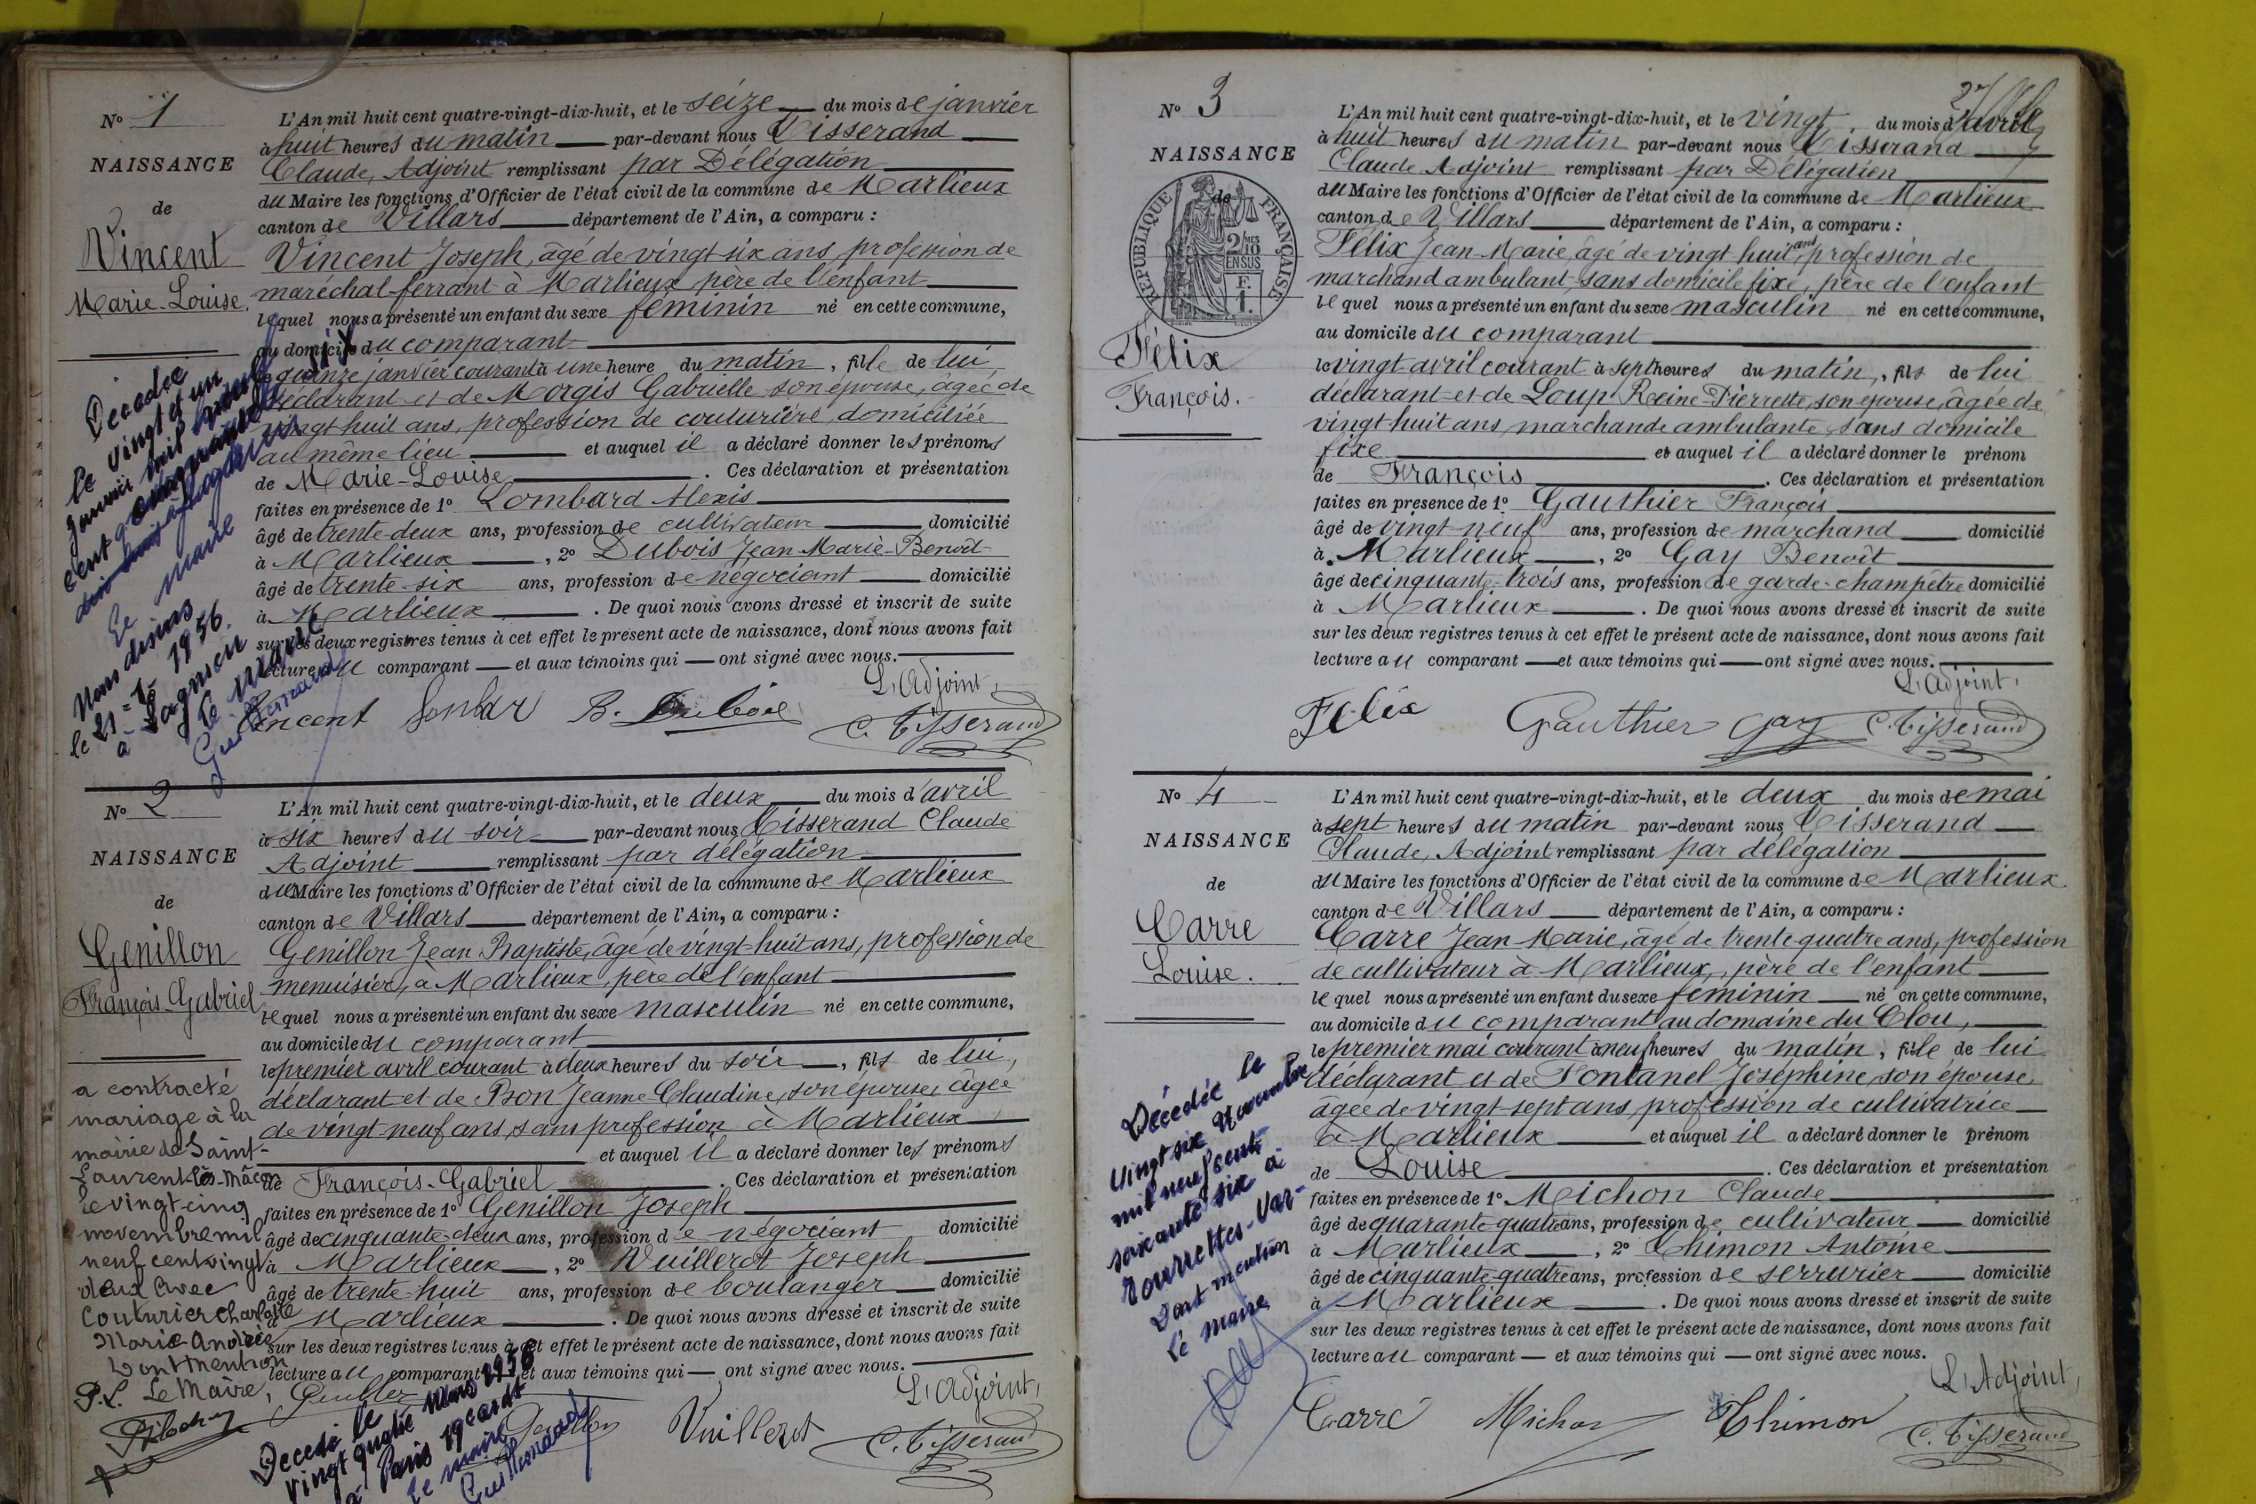 N° 1
NAISSANCE
de
Vincent
Marie-Louise.
L'An mil huit cent quatre-vingt-dix-huit, et le seize du mois de janvier
à huit heures du matin par-devant nous Tisserand
Claude, Adjoint remplissant par Délégation
du Maire les fonctions d'Officier de l'état civil de la commune de Marlieux
canton de Villars département de l'Ain, a comparu :
Vincent Joseph, âgé de vingt six ans, profession de
maréchal-ferrant à Marlieux père de l'enfant
lequel nous a présenté un enfant du sexe féminin né en cette commune,
au domicile du comparant
le quinze janvier courant à une heure du matin, fille de lui,
déclarant et de Morgis Gabrielle son épouse, âgée de
vingt huit ans, profession de couturière domiciliée
au même lieu et auquel il a déclaré donner les prénoms
de Marie-Louise. Ces déclaration et présentation
faites en présence de 1° Lombard Alexis
âgé de trente-deux ans, profession de cultivateur domicilié
à Marlieux, 2° Dubois Jean-Marie-Benoît
âgé de trente-six ans, profession de négociant domicilié
à Marlieux. De quoi nous avons dressé et inscrit de suite
sur les deux registres tenus à cet effet le présent acte de naissance, dont nous avons fait
lecture au comparant et aux témoins qui ont signé avec nous.
L'Adjoint,
Vincent B. Dubois C. Tisserand
Décédée
le vingt et un
janvier mil neuf
cent
Le maire
Nous disons
le 21-1-1956
à Lagnieu
le maire
N° 2
NAISSANCE
de
Genillon
François-Gabriel
L'An mil huit cent quatre-vingt-dix-huit, et le deux du mois d'avril
à six heures du soir par-devant nous Tisserand Claude
Adjoint remplissant par délégation
du Maire les fonctions d'Officier de l'état civil de la commune de Marlieux
canton de Villars département de l'Ain, a comparu :
Genillon Jean Baptiste, âgé de vingt-huit ans, profession de
menuisier, à Marlieux, père de l'enfant
lequel nous a présenté un enfant du sexe masculin né en cette commune,
au domicile du comparant
le premier avril courant à deux heures du soir, fils de lui,
déclarant et de Bon Jeanne-Claudine, son épouse, âgée
de vingt-neuf ans, sans profession à Marlieux
et auquel il a déclaré donner les prénoms
de François-Gabriel. Ces déclaration et présentation
faites en présence de 1° Genillon Joseph
âgé de cinquante-deux ans, profession de négociant domicilié
à Marlieux, 2° Vuillerot Joseph
âgé de trente-huit ans, profession de boulanger domicilié
à Marlieux. De quoi nous avons dressé et inscrit de suite
sur les deux registres tenus à cet effet le présent acte de naissance, dont nous avons fait
lecture au comparant et aux témoins qui ont signé avec nous.
L'Adjoint,
Vuillerot C. Tisserand
a contracté
mariage à la
mairie de Saint-
Laurent-lès-Mâcon
le vingt-cinq
novembre mil
neuf cent vingt
deux avec
Couturier Charlotte
Marie-Andrée
Dont mention
P.L. Le Maire,
Décédé le
vingt quatre Mars 1958
à Paris 19e ardt
Le maire
N° 3
NAISSANCE
de
RÉPUBLIQUE FRANÇAISE
2/10
EN SUS
F.
1.
Félix
François.
27
L'An mil huit cent quatre-vingt-dix-huit, et le vingt du mois d'avril
à huit heures du matin par-devant nous Tisserand
Claude Adjoint remplissant par Délégation
du Maire les fonctions d'Officier de l'état civil de la commune de Marlieux
canton de Villars département de l'Ain, a comparu :
Félix Jean-Marie, âgé de vingt huit ans, profession de
marchand ambulant, sans domicile fixe, père de l'enfant
lequel nous a présenté un enfant du sexe masculin né en cette commune,
au domicile du comparant
le vingt avril courant à sept heures du matin, fils de lui
déclarant et de Loup Reine-Pierrette, son épouse, âgée de
vingt-huit ans, marchande ambulante, sans domicile
fixe et auquel il a déclaré donner le prénom
de François. Ces déclaration et présentation
faites en présence de 1° Gauthier François
âgé de vingt-neuf ans, profession de marchand domicilié
à Marlieux, 2° Gay Benoît
âgé de cinquante-trois ans, profession de garde-champêtre domicilié
à Marlieux. De quoi nous avons dressé et inscrit de suite
sur les deux registres tenus à cet effet le présent acte de naissance, dont nous avons fait
lecture au comparant et aux témoins qui ont signé avec nous.
L'Adjoint,
Félix Gauthier Gay C. Tisserand
N° 4
NAISSANCE
de
Carre
Louise.
L'An mil huit cent quatre-vingt-dix-huit, et le deux du mois de mai
à sept heures du matin par-devant nous Tisserand
Claude, Adjoint remplissant par délégation
du Maire les fonctions d'Officier de l'état civil de la commune de Marlieux.
canton de Villars département de l'Ain, a comparu :
Carre Jean-Marie, âgé de trente quatre ans, profession
de cultivateur à Marlieux, père de l'enfant
lequel nous a présenté un enfant du sexe féminin né en cette commune,
au domicile du comparant au domaine du Clou,
le premier mai courant à neuf heures du matin, fille de lui
déclarant et de Fontanel Joséphine, son épouse,
âgée de vingt-sept ans, profession de cultivatrice
à Marlieux et auquel il a déclaré donner le prénom
de Louise. Ces déclaration et présentation
faites en présence de 1° Michon Claude
âgé de quarante-quatre ans, profession de cultivateur domicilié
à Marlieux, 2° Thimon Antoine
âgé de cinquante-quatre ans, profession de serrurier domicilié
à Marlieux. De quoi nous avons dressé et inscrit de suite
sur les deux registres tenus à cet effet le présent acte de naissance, dont nous avons fait
lecture au comparant et aux témoins qui ont signé avec nous.
L'Adjoint,
Carré Michon Thimon C. Tisserand
Décédée le
vingt six Novembre
mil neuf cent-
soixante six à
Tourrettes-Var-
Dont mention
Le maire